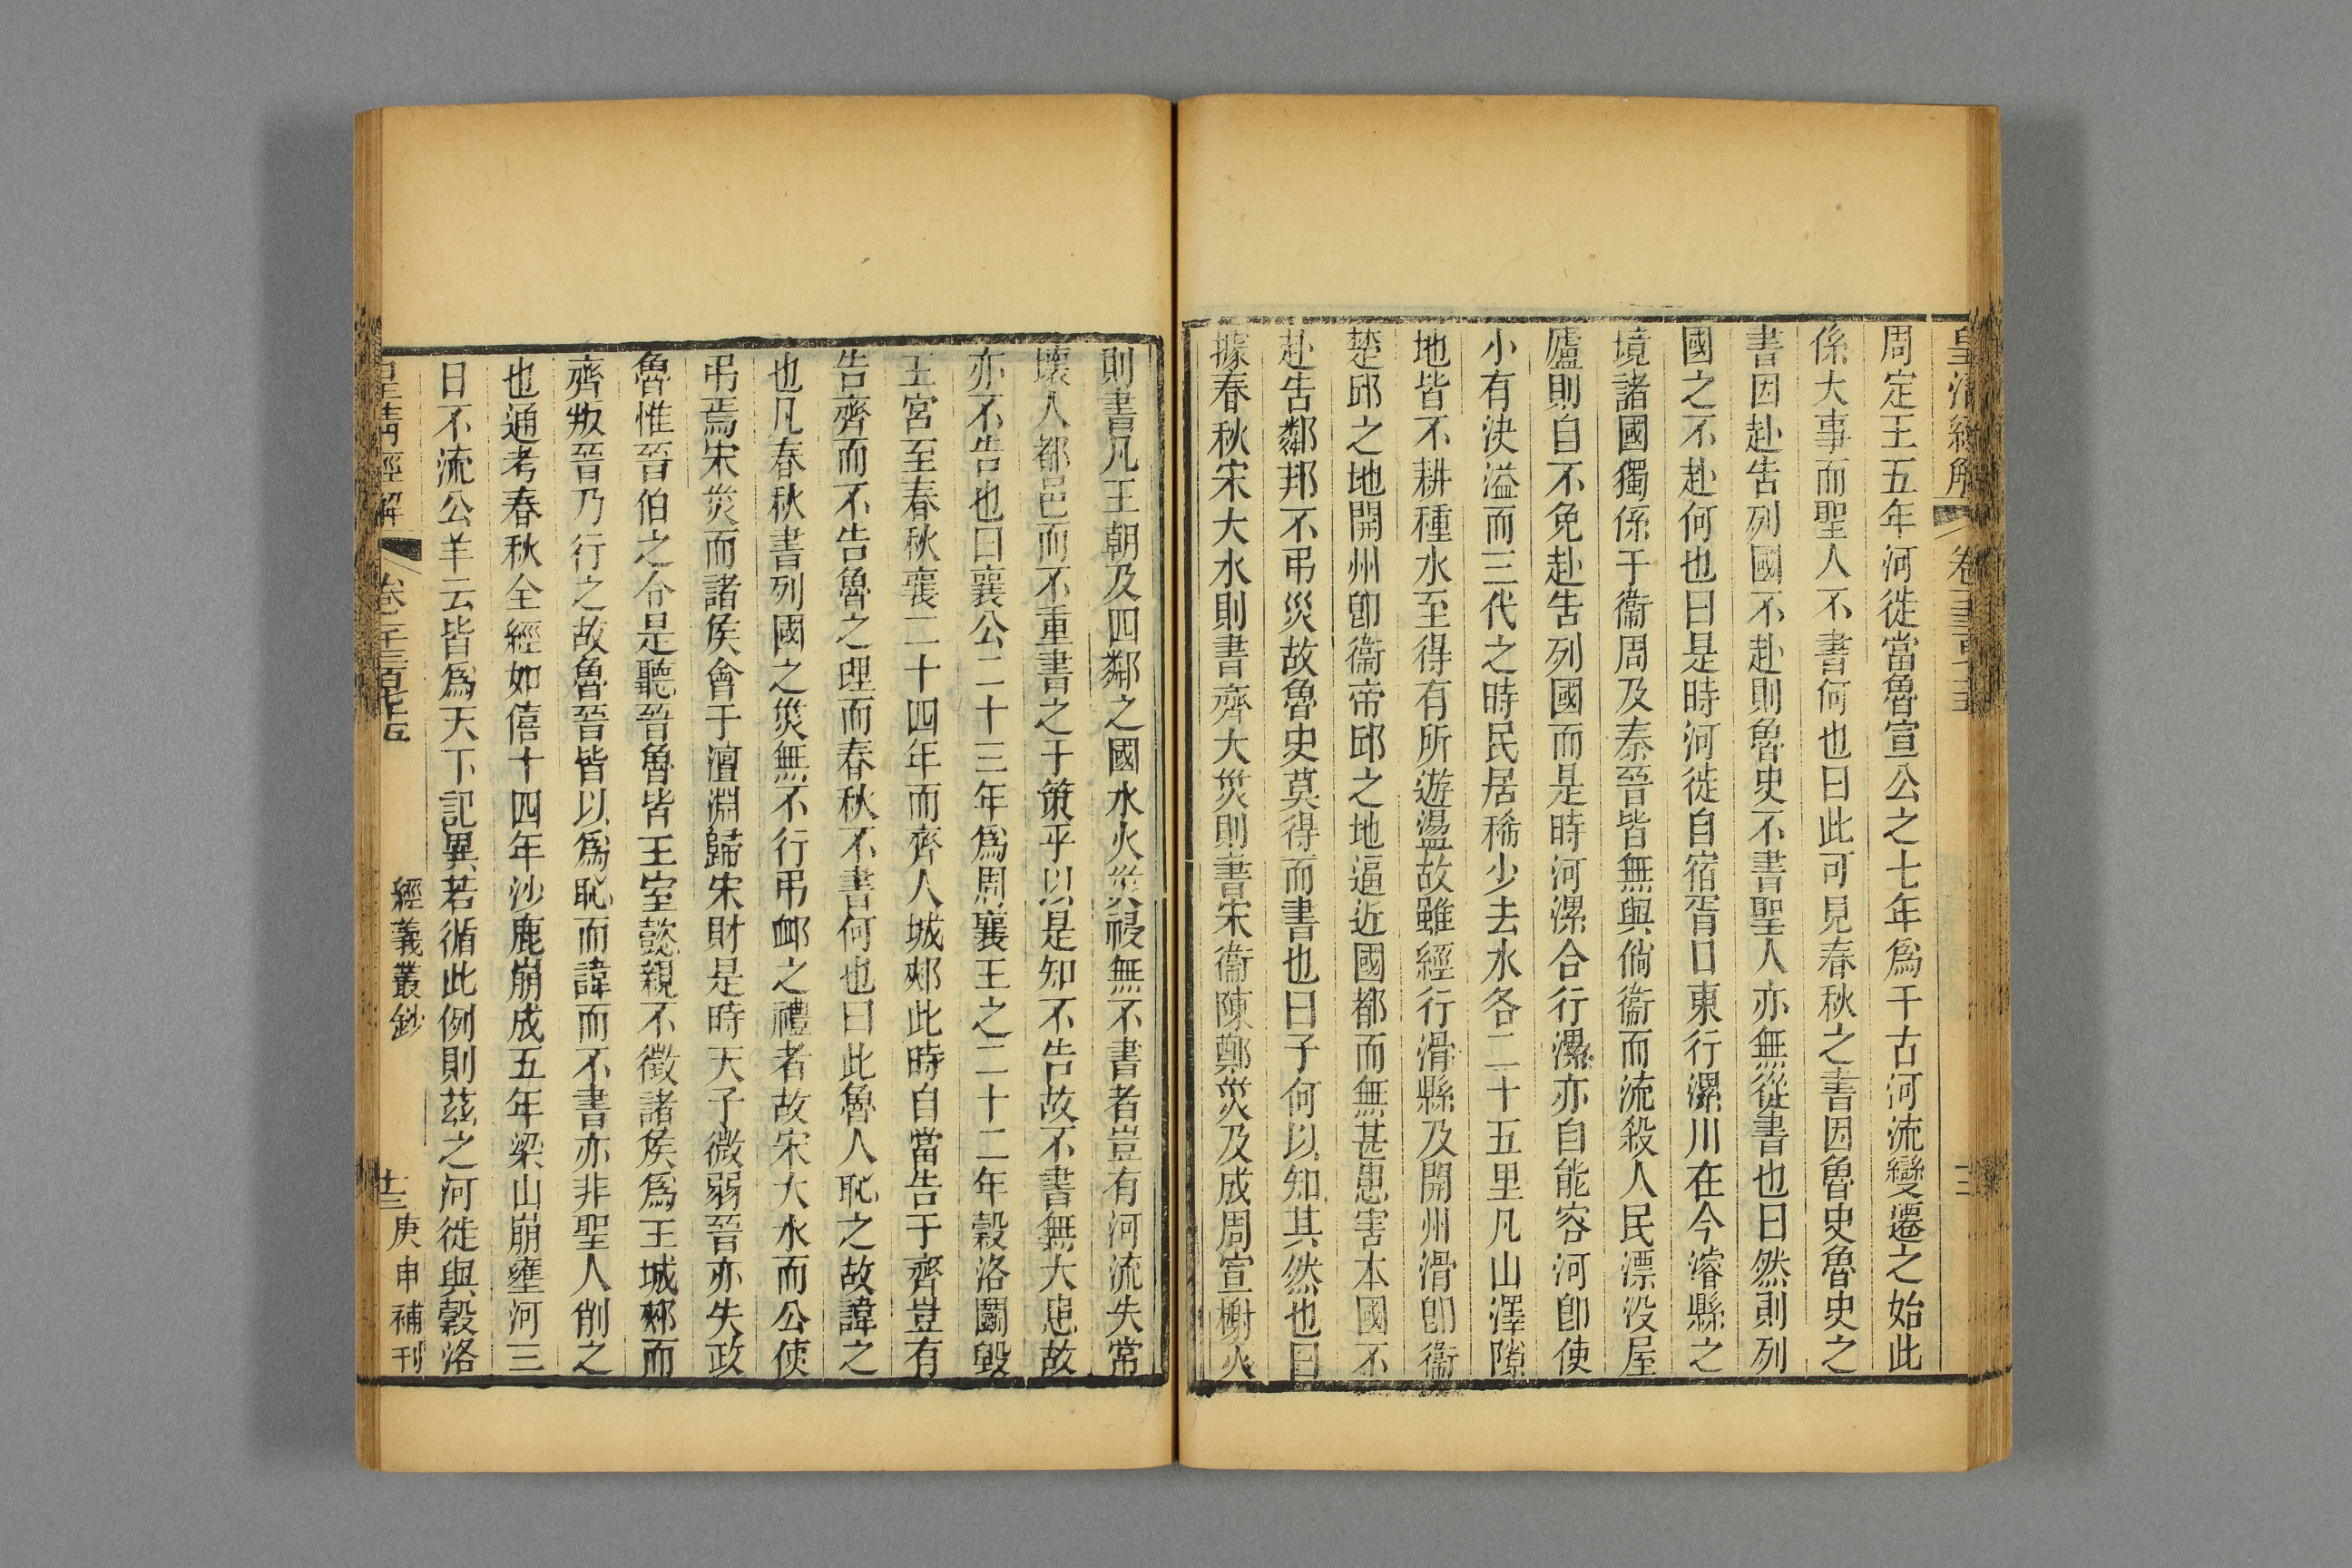 周定王五年河徙當魯宣公之七年爲千古河流變遷之始此
係大事而聖人不書何也曰此可見春秋之書因魯史魯史之
書因赴告列國不赴則魯史不書聖人亦無從書也曰然則列
國之不赴何也曰是時河徙自宿胥口東行漯川在今濬縣之
境諸國獨係于衞周及秦晉皆無與倘衞而流殺人民漂沒屋
廬則自不免赴告列國而是時河漯合行漯亦自能容河卽使
小有決溢而三代之時民居稀少去水各二十五里凡山澤隙
地皆不耕種水至得有所遊盪故雖經行滑縣及開州滑卽衞
楚邱之地開州卽衞帝邱之地逼近國都而無甚患害本國不
赴告鄰邦不弔災故魯史莫得而書也曰子何以知其然也曰
據春秋宋大水則書齊大災則書宋衞陳鄭災及成周宣榭火
則書凡王朝及四鄰之國水火災祲無不書者豈有河流失常
壞人都邑而不重書之于策乎以是知不告故不書無大患故
亦不告也曰襄公二十三年爲周襄王之二十二年穀洛鬭毀
王宮至春秋襄二十四年而齊人城郟此時自當告于齊豈有
告齊而不告魯之理而春秋不書何也曰此魯人恥之故諱之
也凡春秋書列國之災無不行弔卹之禮者故宋大水而公使
弔焉宋災而諸侯會于澶淵歸宋財是時天子微弱晉亦失政
魯惟晉伯之令是聽晉魯皆王室懿親不徵諸侯爲王城郟而
齊叛晉乃行之故魯晉皆以爲恥而諱而不書亦非聖人削之
也通考春秋全經如僖十四年沙鹿崩成五年梁山崩壅河三
日不流公羊云皆爲天下記異若循此例則茲之河徙與穀洛
皇清經解 經義叢鈔 庚申補刊